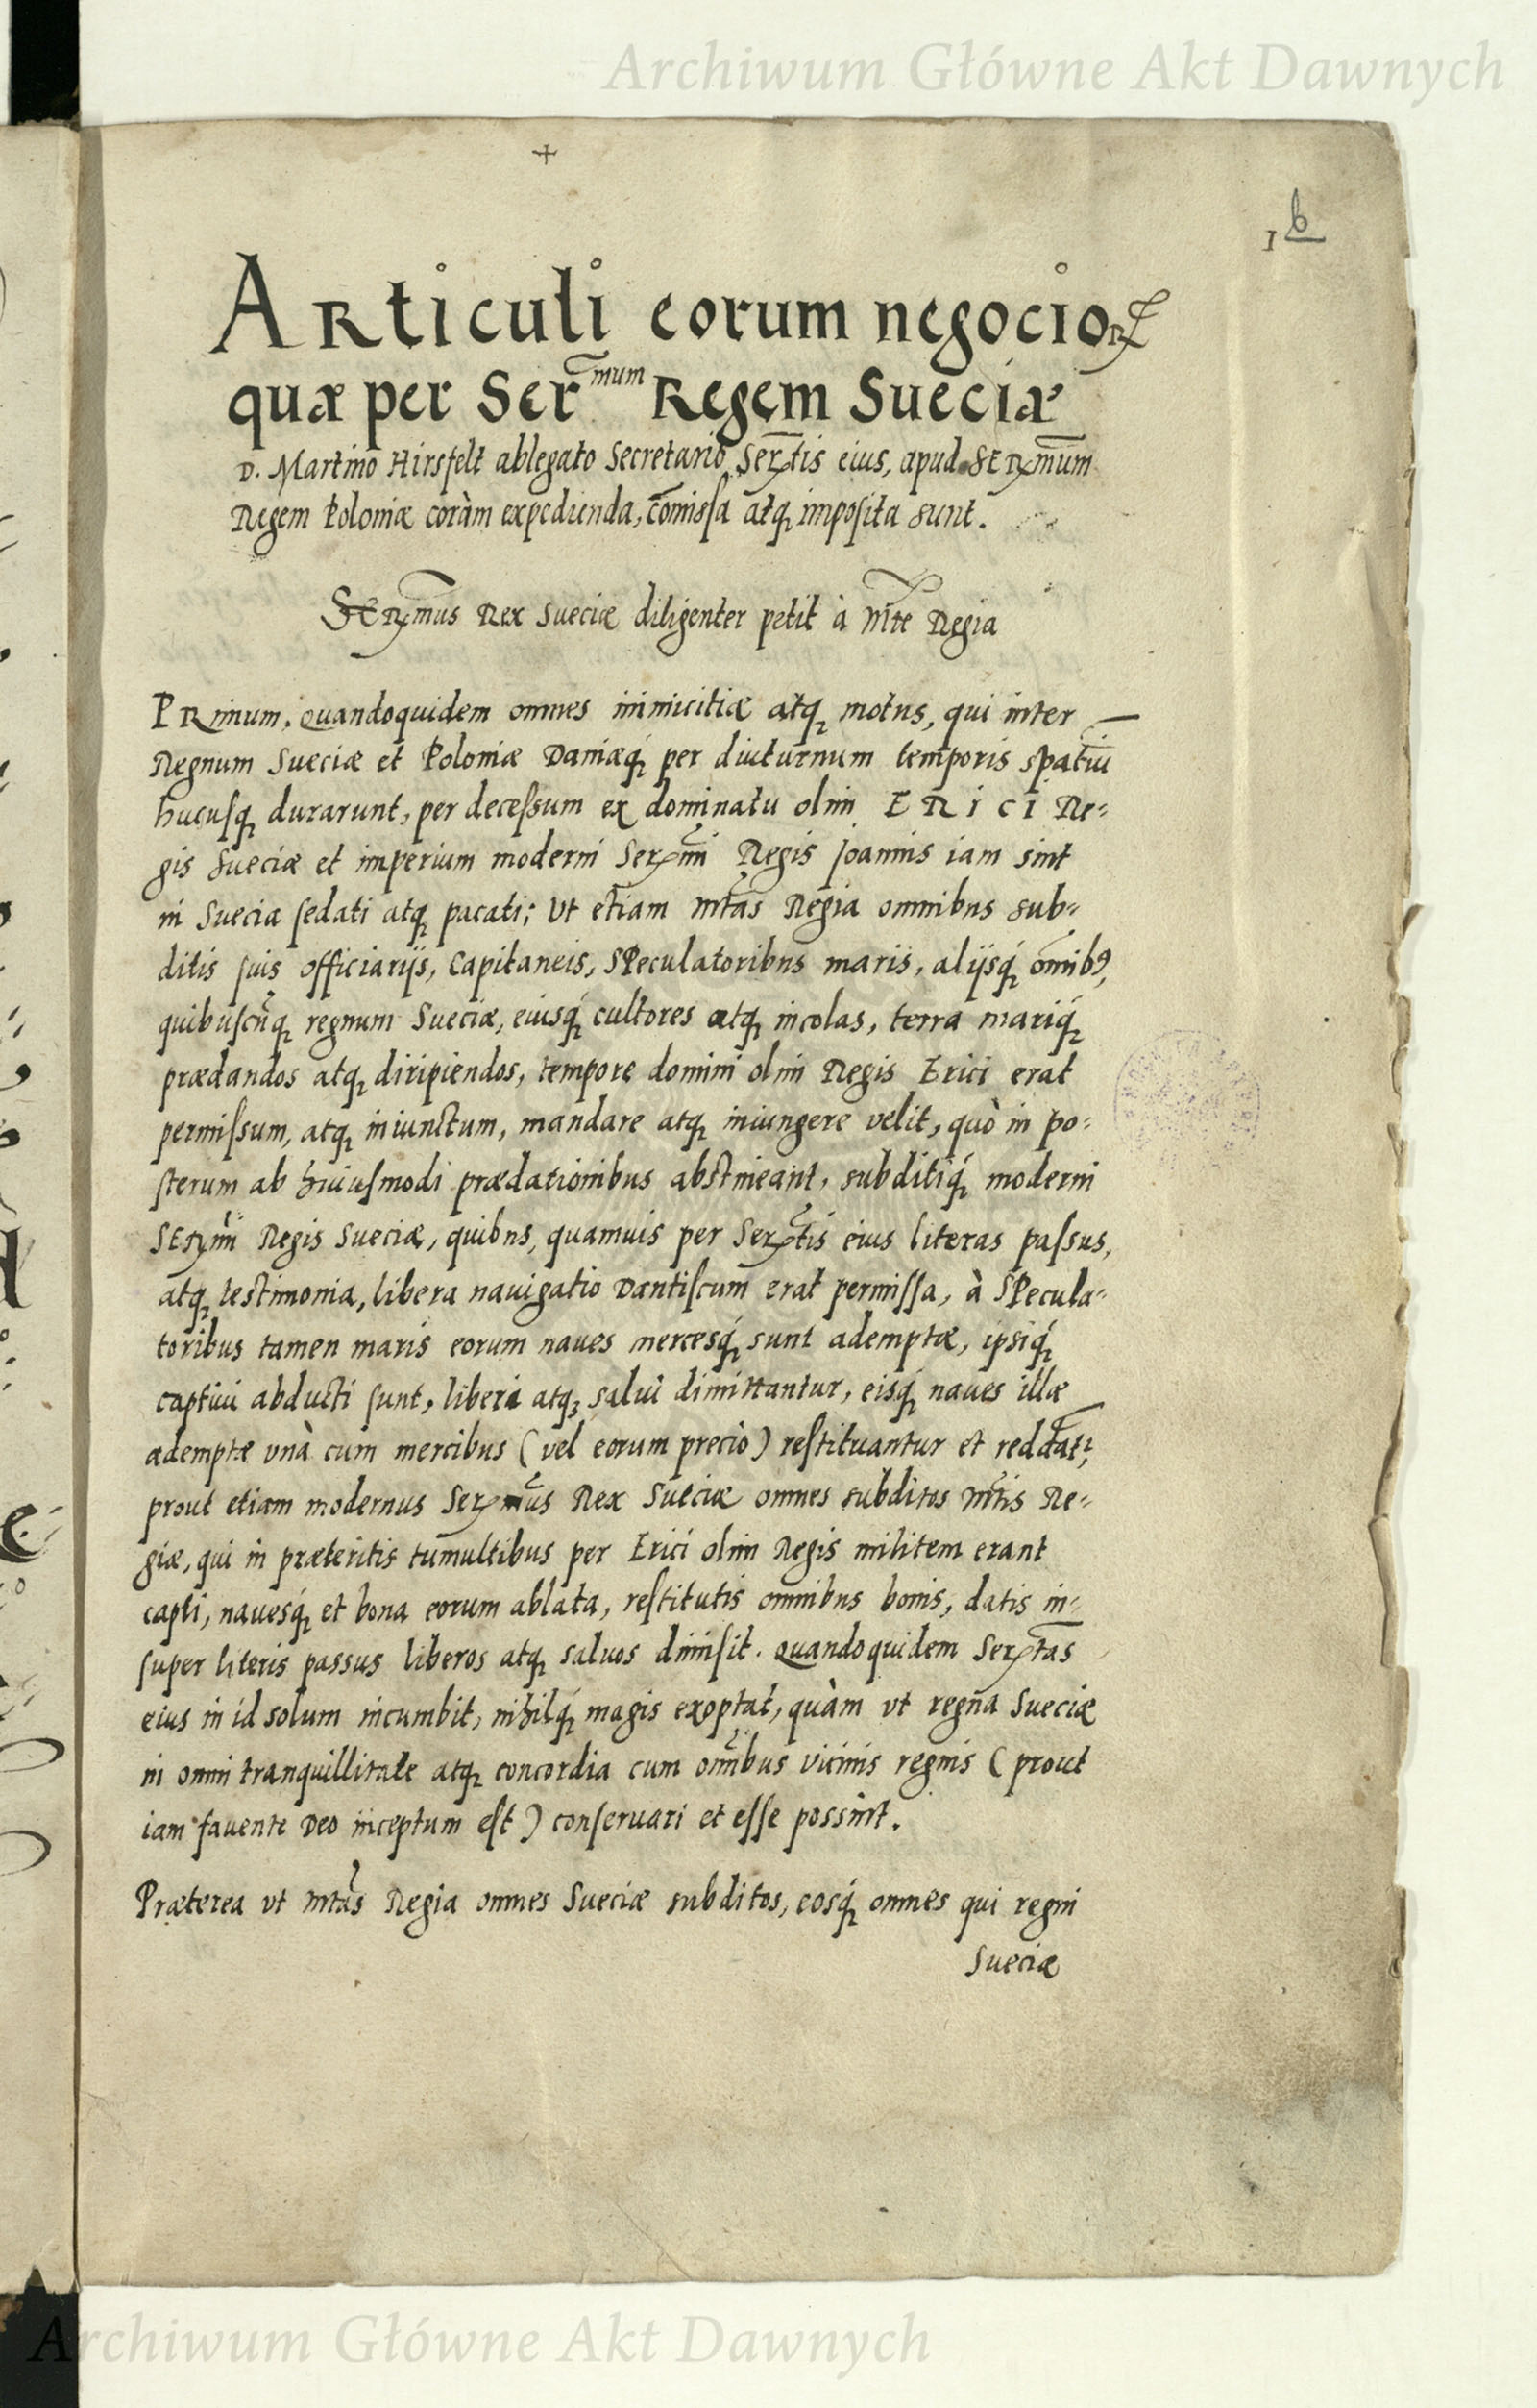 Archiwum Główne Akt Dawnych
+
1 6
Articuli eorum negocioꝝ
quæ per Ser^mum Regem Sueciæ
D. Martino Hirsfelt ablegato Secretario Serᵐtis eius, apud SERmum
Regem Poloniæ coràm expedienda, com̄issa atq; imposita sunt.
SERmus Rex Sueciæ diligenter petit à Mte Regia
PRimum, Quandoquidem omnes inimicitiæ atq; motus, qui inter
Regnum Sueciæ et Poloniæ Daniæq́; per diuturnum temporis spatiū
hucusq; durarunt, per decessum ex dominatu olim ERICI Re-
gis Sueciæ et imperium moderni Sermi Regis Joannis iam sint
in Suecia sedati atq; pacati; Vt etiam Mtas Regia omnibus sub-
ditis suis officiarijs, Capitaneis, SPeculatoribus maris, alijsq́; omībꝰ,
quibuscūq; regnum Sueciæ, eiusq́; cultores atq; incolas, terra mariq́;
prædandos atq; diripiendos, tempore domini olim Regis Erici erat
permissum, atq; iniunctum, mandare atq; iniungere velit, quò in po-
sterum ab huiusmodi prædationibus abstineant, subditiq́; moderni
SERmi Regis Sueciæ, quibus, quamuis per Sertis eius literas passus,
atq; testimonia, libera nauigatio Dantiscum erat permissa, à SPecula-
toribus tamen maris eorum naues mercesq́; sunt ademptæ, ipsiq́;
captiui abducti sunt, liberi atq; salui dimittantur, eisq́; naues illæ
ademptæ vnà cum mercibus (vel eorum precio) restituantur et reddāt²,
prout etiam modernus Sermus Rex Sueciæ omnes subditos Mtis Re-
giæ, qui in præteritis tumultibus per Erici olim Regis militem erant
capti, nauesq́; et bona eorum ablata, restitutis omnibus bonis, datis in-
super literis passus liberos atq; saluos dimisit. Quandoquidem Sertas
eius in id solum incumbit, nihilq́; magis exoptat, quàm vt regna Sueciæ
in omni tranquillitate atq; concordia cum om̄ibus vicinis regnis (prout
iam fauente Deo inceptum est) conseruari et esse possint.
Præterea vt Mtas Regia omnes Sueciæ subditos, eosq́; omnes qui regni
Sueciæ
Archiwum Główne Akt Dawnych